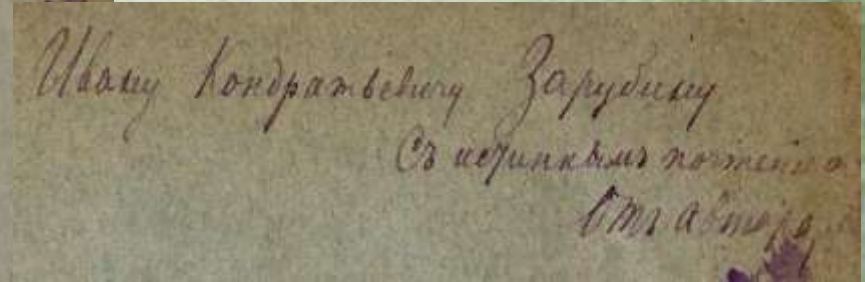 Ивану Кондратьевичу Зарубину
Съ истиннымъ почтеніемъ
Отъ автора